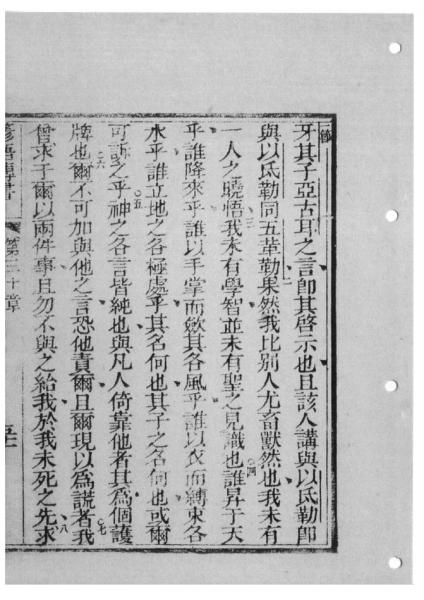 一節
牙其子亞古耳之言卽其啓示也且該人講與以氐勒卽
與以氐勒同五革勒果然我比別人尤畜獸然也我未有
二
一人之曉悟我未有學智並未有聖之見識也誰昇于天
三
四
乎誰降來乎誰以手掌而斂其各風乎誰以衣而縛束各
水乎誰立地之各極處乎其名何也其子之名何也或爾
五
可訴之乎神之各言皆純也與凡人倚靠他者其爲個護
六
牌也爾不可加與他之言恐他責爾且爾現以爲謊者我
七
曾求于爾以兩件事且勿不與之給我於我未死之先求
八
諺語傳書
第三十章